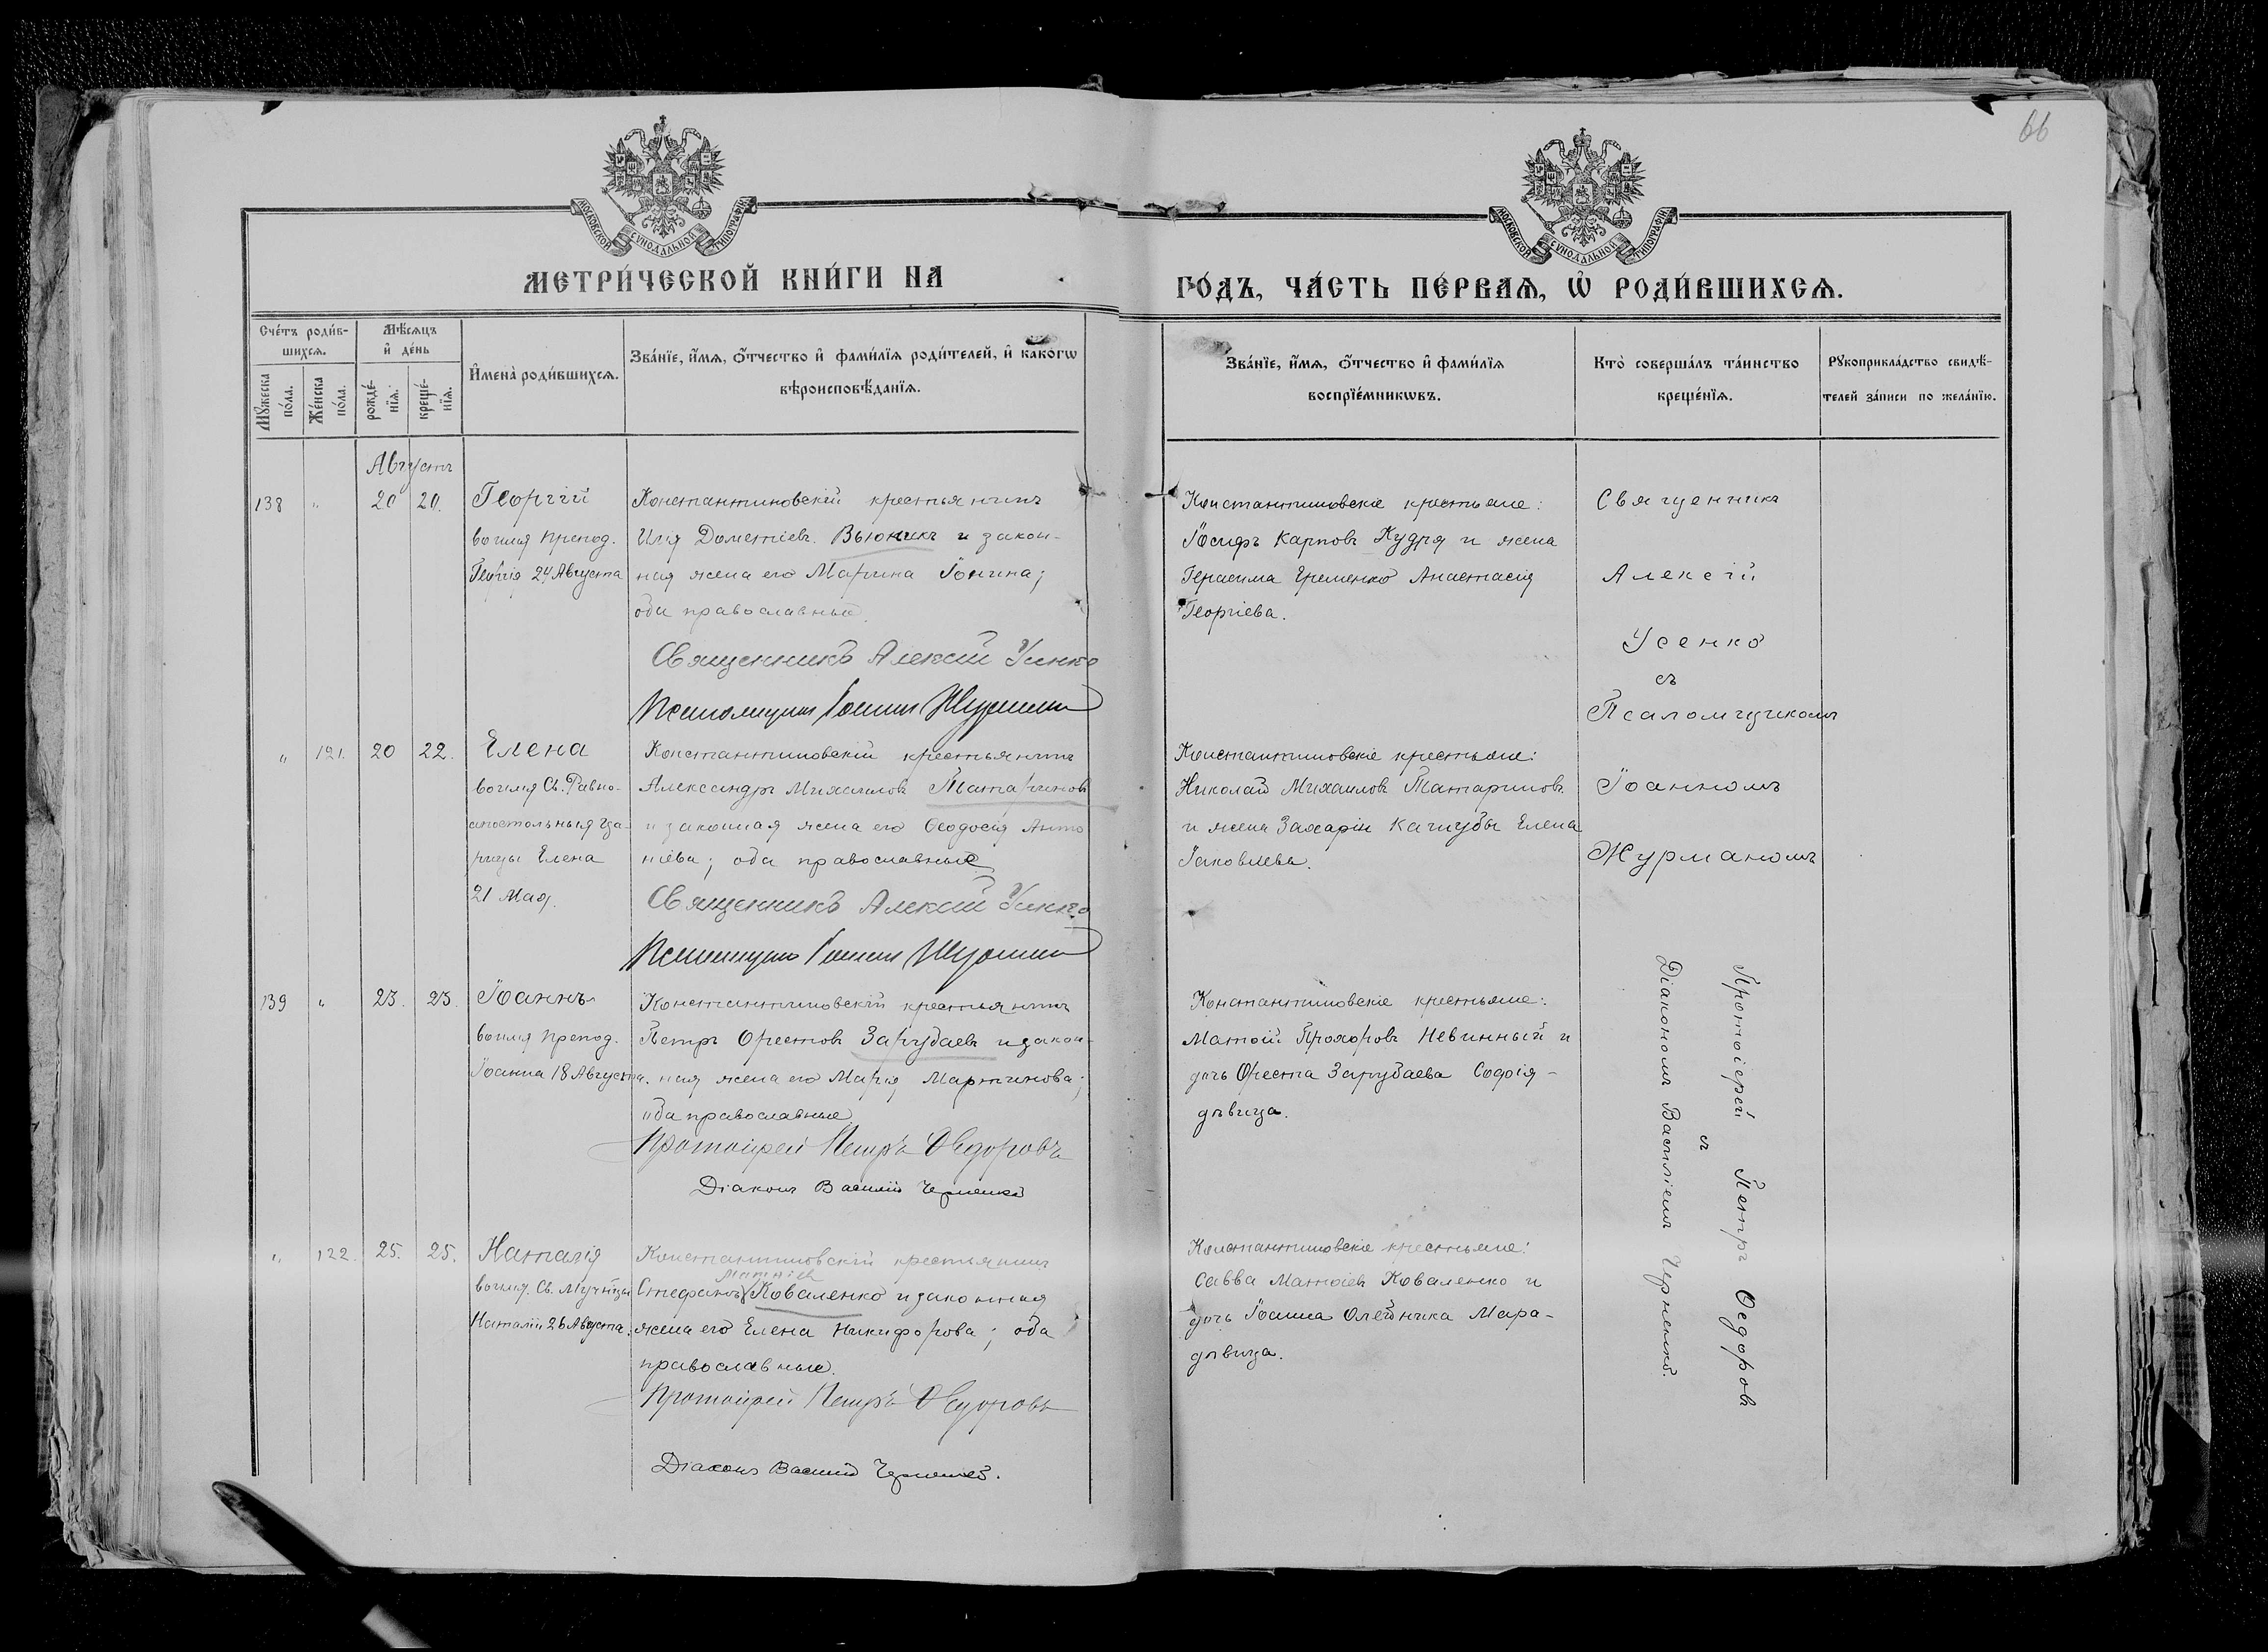 66
МОСКОВСКОЙ СѴНОДАЛЬНОЙ ТИПОГРАФІИ
МОСКОВСКОЙ СѴНОДАЛЬНОЙ ТИПОГРАФІИ
МЕТРИ́ЧЕСКОЙ КНИ́ГИ НА
ГО́ДЪ, ЧА́СТЬ ПЕ́РВАѦ, Ѡ҆ РОДИ́ВШИХСѦ.
Сче́тъ роди́в-
шихсѧ.
Мѣ́сѧцъ
и҆ де́нь
И҆мена̀ роди́вшихсѧ.
Зва́нїе, и҆́мѧ, ѻ҆́тчество и҆ фами́лїѧ роди́телей, и҆ како́гѡ
вѣроисповѣ́данїѧ.
Мꙋ́жеска
по́ла.
Же́нска
по́ла.
рожде́-
нїѧ.
креще́-
нїѧ.
Зва́нїе, и҆́мѧ, ѻ҆́тчество и҆ фами́лїѧ
воспрїе́мникѡвъ.
Кто̀ соверша́лъ та́инство
креще́нїѧ.
Рꙋкоприкла́дство свидѣ́-
телей за́писи по жела́нїю.
Августъ
138 " 20 20. Георгій
во имя препод.
Георгія 24 Августа
Константиновскій крестьянинъ
Илія Дометіевъ Вьюникъ и закон-
ная жена его Марина Іонина;
оба православные.
Священникъ Алексій Усенко
Псаломщикъ Іоаннъ Журманъ
Константиновскіе крестьяне:
Іосифъ Карповъ Кудря и жена
Герасима Еременко Анастасія
Георгіева.
Священникъ
Алексій
Усенко
съ
Псаломщикомъ
Іоанномъ
Журманомъ
" 121. 20 22. Елена
во имя Св. Равно-
апостольныя Ца-
рицы Елена
21 Мая.
Константиновскій крестьянинъ
Александръ Михаиловъ Татариновъ
и законная жена его Ѳеодосія Анто
ніева; оба православные
Священникъ Алексій Усенко
Псаломщикъ Іоаннъ Журманъ
Константиновскіе крестьяне:
Николай Михаиловъ Татариновъ
и жена Захаріи Качубы Елена
Іаковлева.
139 " 23. 23. Іоаннъ
во имя препод.
Іоанна 18 Августа.
Константиновскій крестьянинъ
Петръ Орестовъ Зарубаевъ и закон-
ная жена его Марія Мартинова;
оба православные
Протоіерей Петръ Ѳедоровъ
Діаконъ Василій Черненко
Константиновскіе крестьяне:
Матѳій Прохоровъ Невинный и
дочь Ореста Зарубаева Софія -
дѣвица.
Протоіерей Петръ Ѳедоровъ
съ
Діакономъ Василіемъ Черненко.
" 122. 25. 25. Наталія
во имя Св. Муч-цы
Наталіи 26 Августа.
Константиновскій крестьянинъ
Стефанъ Коваленко и законная
жена его Елена Никифорова; оба
православные.
Протоіерей Петръ Ѳедоровъ
Діаконъ Василій Черненко.
Константиновскіе крестьяне:
Савва Матѳіевъ Коваленко и
дочь Іоанна Олейника Мара-
дѣвица.